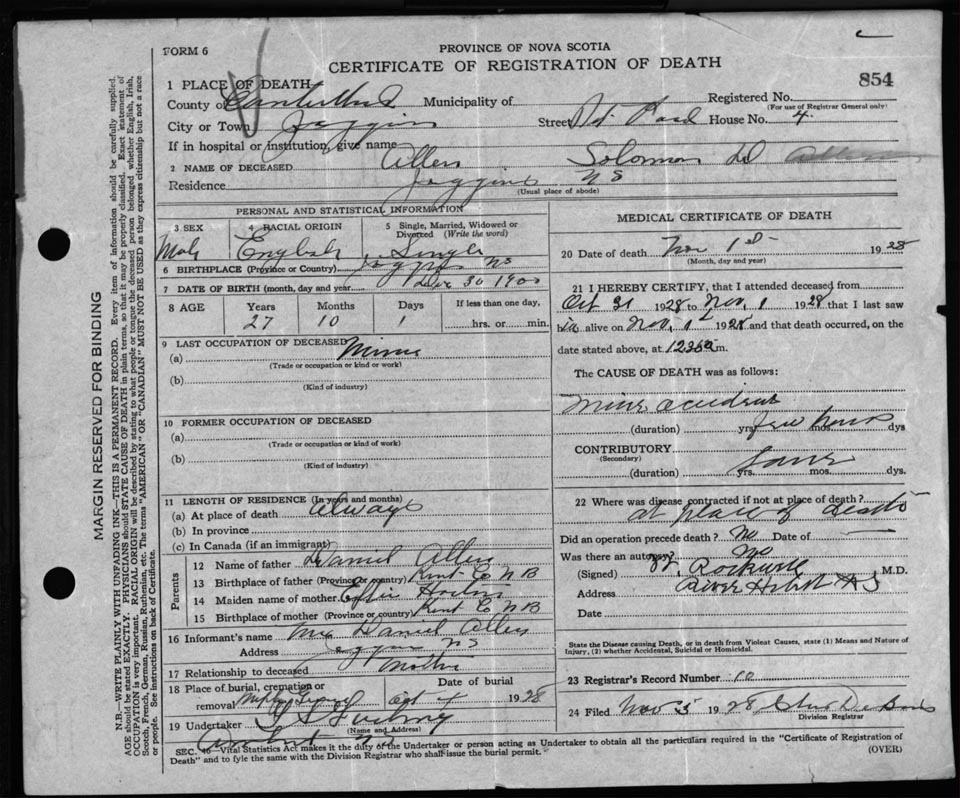 FORM 6
PROVINCE OF NOVA SCOTIA
CERTIFICATE OF REGISTRATION OF DEATH
854
1 PLACE OF DEATH
County of Cumberland Municipality of Registered No.
(For use of Registrar General only)
City or Town Joggins Street Pt. Road House No. 4
If in hospital or institution, give name
2 NAME OF DECEASED Allen Solomon
Residence Joggins NS
(Usual place of abode)
PERSONAL AND STATISTICAL INFORMATION
3 SEX 4 RACIAL ORIGIN 5 Single, Married, Widowed or Divorced (Write the word)
Male English Single
6 BIRTHPLACE (Province or Country) Joggins NS
7 DATE OF BIRTH (month, day and year) Dec 30 1900
8 AGE Years Months Days If less than one day,
27 10 1 hrs. or min.
9 LAST OCCUPATION OF DECEASED
(a) Miner
(Trade or occupation or kind or work)
(b)
(Kind of industry)
10 FORMER OCCUPATION OF DECEASED
(a)
(Trade or occupation or kind of work)
(b)
(Kind of industry)
11 LENGTH OF RESIDENCE (In years and months)
(a) At place of death Always
(b) In province
(c) In Canada (if an immigrant)
Parents
12 Name of father Daniel Allen
13 Birthplace of father (Province or country) Kent Co NB
14 Maiden name of mother Effie
15 Birthplace of mother (Province or country) Kent Co NB
16 Informant's name Mrs Daniel Allen
Address Joggins NS
17 Relationship to deceased Mother
18 Place of burial, cremation or removal Date of burial
4 1928
19 Undertaker
(Name and Address)
MEDICAL CERTIFICATE OF DEATH
20 Date of death Nov 1st 1928
(Month, day and year)
21 I HEREBY CERTIFY, that I attended deceased from
Oct 31 1928 to Nov. 1 1928 that I last saw
him alive on Nov. 1 1928 and that death occurred, on the
date stated above, at 1230 a m.
The CAUSE OF DEATH was as follows:
Mine accident
(duration) yrs. few hours mos. dys
CONTRIBUTORY
(Secondary)
Same
(duration) yrs. mos. dys.
22 Where was disease contracted if not at place of death?
at place of death
Did an operation precede death? No Date of
Was there an autopsy? No
(Signed) Rockwell M.D.
Address River Hebert NS
Date
State the Disease causing Death, or in death from Violent Causes, state (1) Means and Nature of
Injury, (2) whether Accidental, Suicidal or Homicidal.
23 Registrar's Record Number 10
24 Filed Nov 5 1928
Division Registrar
SEC. Vital Statistics Act makes it the duty of the Undertaker or person acting as Undertaker to obtain all the particulars required in the "Certificate of Registration of
Death" and to fyle the same with the Division Registrar who shall issue the burial permit.
(OVER)
MARGIN RESERVED FOR BINDING
N.B.—WRITE PLAINLY WITH UNFADING INK—THIS IS A PERMANENT RECORD. Every item of information should be carefully supplied.
AGE should be stated EXACTLY. PHYSICIANS should STATE CAUSE OF DEATH in plain terms, so that it may be properly classified. Exact statement of
OCCUPATION is very important. RACIAL ORIGIN will be described by stating to what people or tongue the deceased person belonged whether English, Irish,
Scotch, French, German, Russian, Ruthenian, etc. The terms "AMERICAN" OR "CANADIAN" MUST NOT BE USED as they express citizenship but not a race
or people. See instructions on back of Certificate.